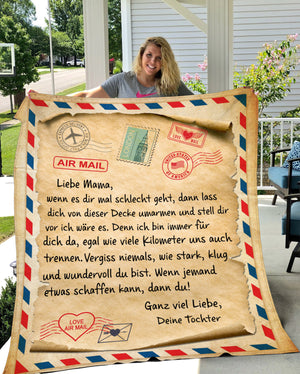 AIR MAIL
LOVE MAIL
UNITED STATES
OF AMERICA
Liebe Mama,
wenn es dir mal schlecht geht, dann lass
dich von dieser Decke umarmen und stell dir
vor ich wäre es. Denn ich bin immer für
dich da, egal wie viele Kilometer uns auch
trennen. Vergiss niemals, wie stark, klug
und wundervoll du bist. Wenn jemand
etwas schaffen kann, dann du!
Ganz viel Liebe,
Deine Töchter
LOVE
AIR MAIL